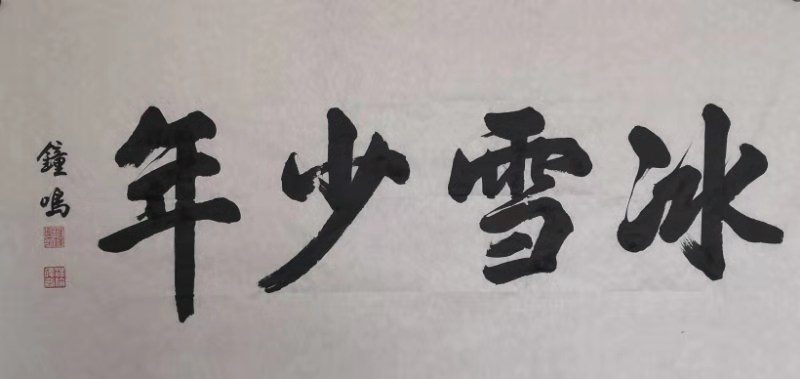 冰雪少年
鐘鳴